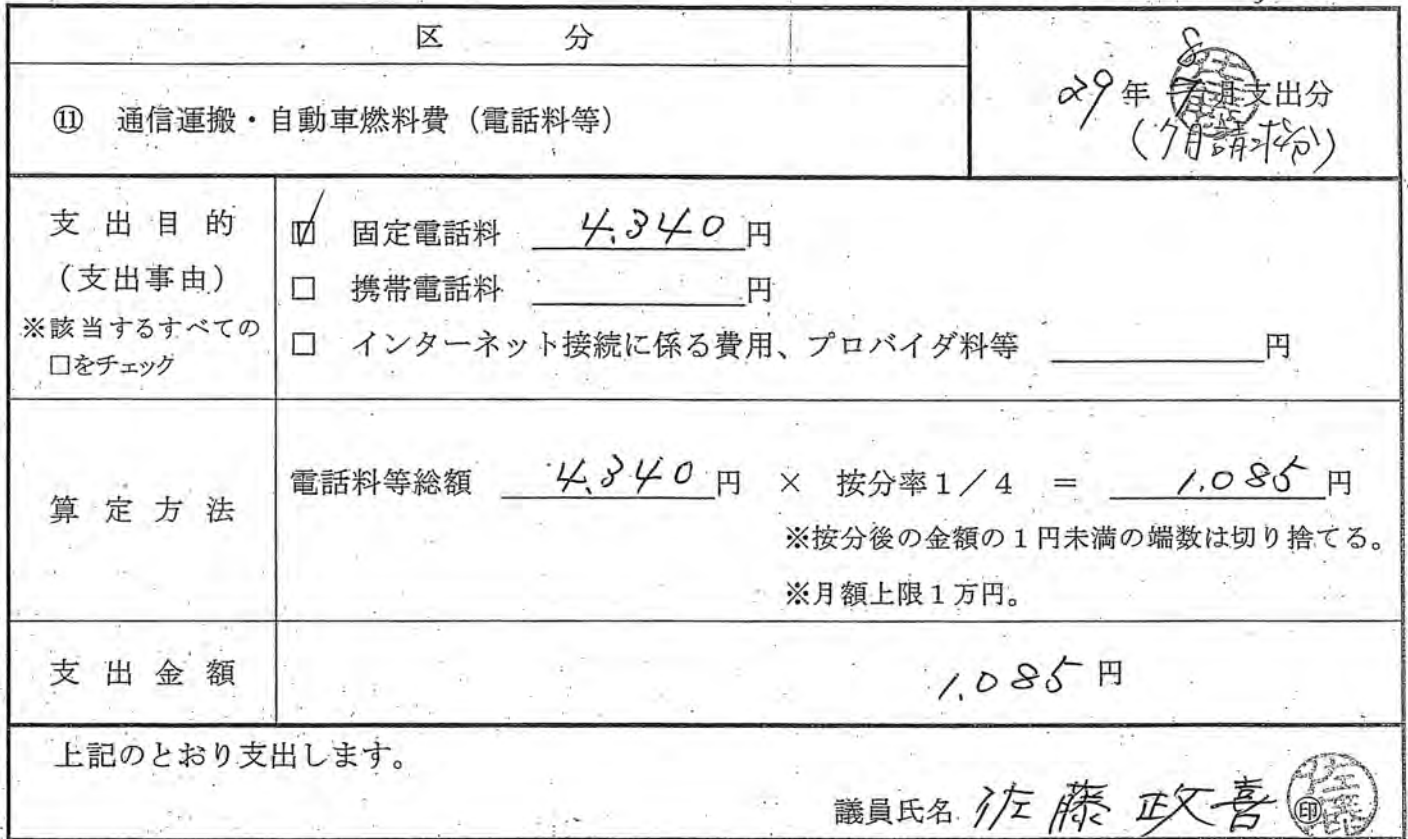 区 分
⑪ 通信運搬・自動車燃料費(電話料等)
8
29年 7月支出分
(7月請求分)
支出目的
(支出事由)
※該当するすべての
□をチェック
☑ 固定電話料 4,340円
□ 携帯電話料 円
□ インターネット接続に係る費用、プロバイダ料等 円
算定方法
電話料等総額 4,340円 × 按分率1/4 = 1,085円
※按分後の金額の1円未満の端数は切り捨てる。
※月額上限1万円。
支出金額
1,085円
上記のとおり支出します。
議員氏名 佐藤 政喜 ㊞